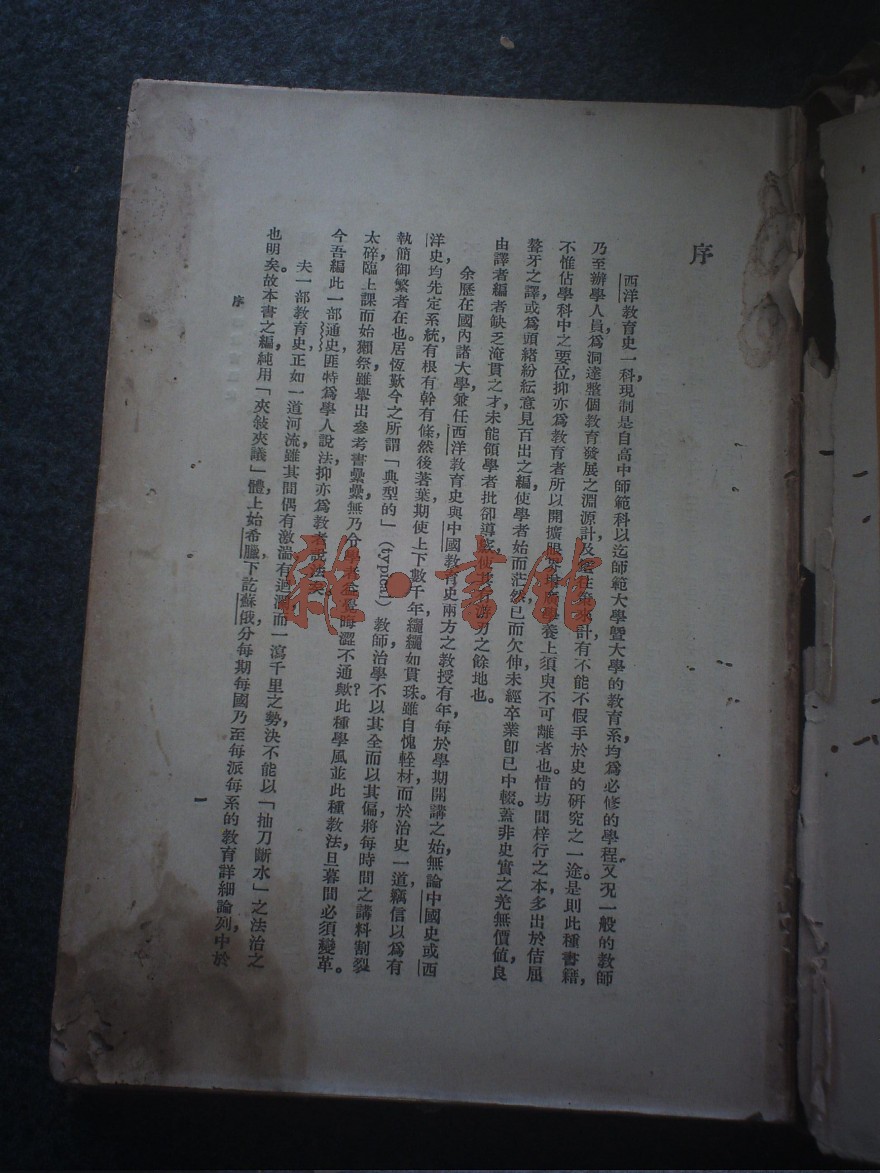 序
西洋教育史一科現制是自高中師範科以迄師範大學暨大學的教育系均爲必修的學程，又况一般的教師
乃至辦學人員，爲洞達整個教育發展之淵源計及 計，有不能不假手於史的研究之一途。是則此種書籍，
不惟佔學科中之要位，抑亦爲教育者所以開擴眼界 學養上須臾不可離者也。惜坊間梓行之本，多出於佶屈
聱牙之譯，或爲頭緒紛紜意見百出之編，使學者始而茫然，已而欠伸，未經卒業，卽已中輟。蓋非史實之光無價值，良
由譯者編者缺乏淹貫之才，未能領學者批卻導 刃之餘地也。
余歷在國內諸大學兼任西洋教育史與中國教育史兩方之教授有年，每於學期開講之始，無論中國史或西
洋史，均先定系統，有根有幹有條，然後著葉，期使上下數千年，纚纚如貫珠。雖自愧輇材，而於治史一道，竊信以爲有
執簡御繁者在也。居恆歎今之所謂「典型的」（typical）教師，治學不以其全而以其偏，將每時間之講料割裂
太碎，臨上課而始獺祭，雖舉出參考書纍纍，無乃令學 晦澀不通歟？此種學風並此種教法，旦暮間必須變革。
今吾編此一部通史，匪特爲學人說法，抑亦爲教者說法矣。
夫一部教育史，正如一道河流，雖其間偶有激湍，有迴瀾，而一瀉千里之勢，決不能以「抽刀斷水」之法治之
也明矣。故本書之編，純用「夾敍夾議」體，上始希臘，下訖蘇俄，分每期每國乃至每派每系的教育詳細論列，中於
序
一
雜·書館